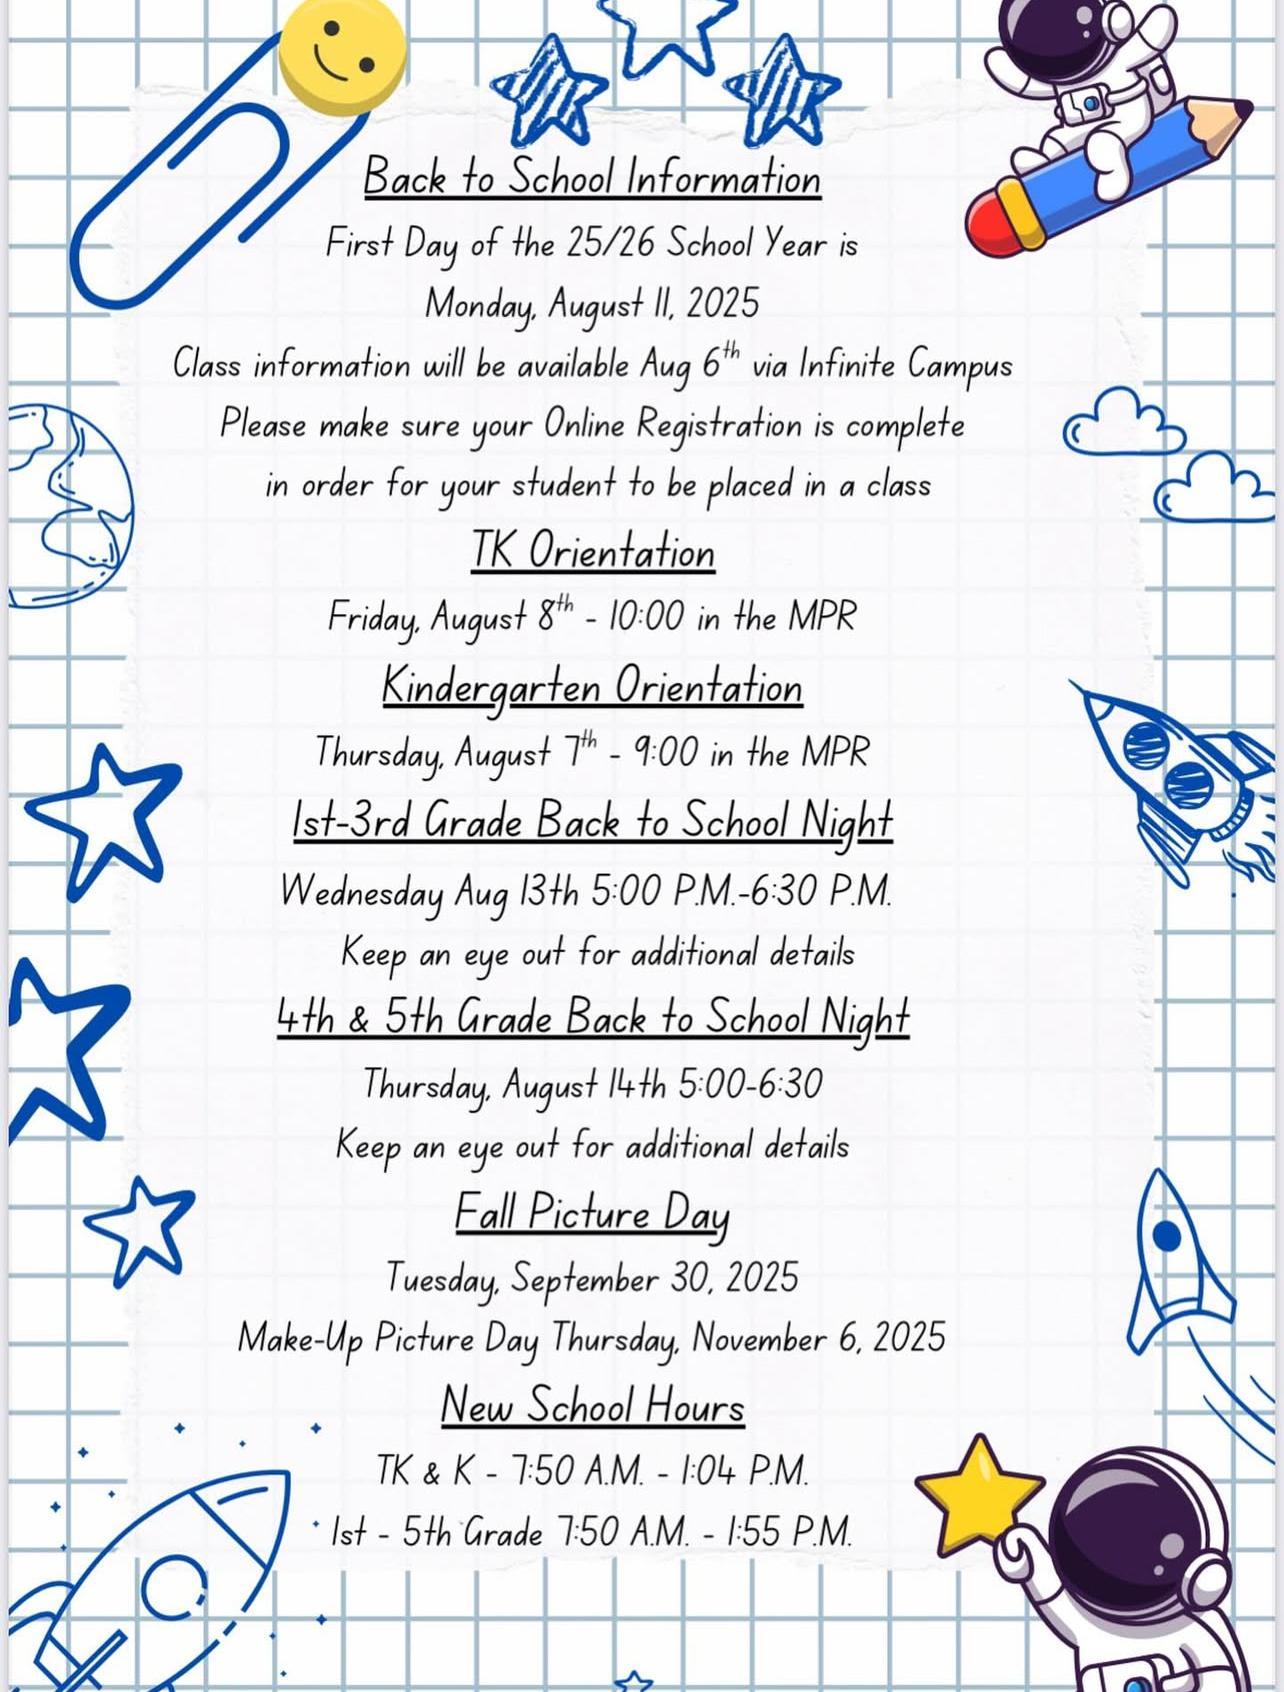 Back to School Information
First Day of the 25/26 School Year is
Monday, August 11, 2025
Class information will be available Aug 6th via Infinite Campus
Please make sure your Online Registration is complete
in order for your student to be placed in a class
TK Orientation
Friday, August 8th - 10:00 in the MPR
Kindergarten Orientation
Thursday, August 7th - 9:00 in the MPR
1st-3rd Grade Back to School Night
Wednesday Aug 13th 5:00 P.M.-6:30 P.M.
Keep an eye out for additional details
4th & 5th Grade Back to School Night
Thursday, August 14th 5:00-6:30
Keep an eye out for additional details
Fall Picture Day
Tuesday, September 30, 2025
Make-Up Picture Day Thursday, November 6, 2025
New School Hours
TK & K - 7:50 A.M. - 1:04 P.M.
1st - 5th Grade 7:50 A.M. - 1:55 P.M.